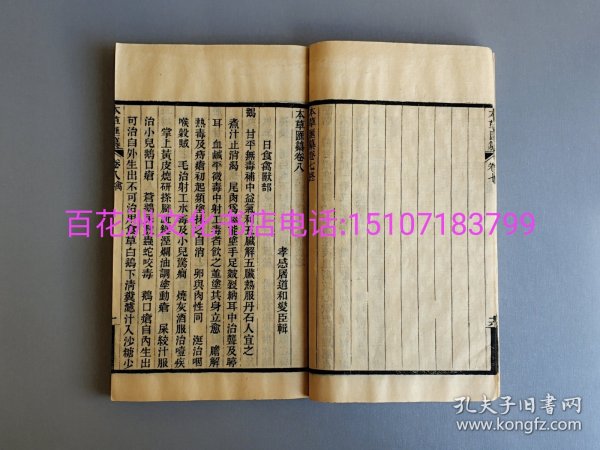 本草匯纂卷七終
本草匯纂卷八
孝感屠道和燮臣輯
日食禽獸部
鵝 甘平無毒補中益氣和五臟解五臟熱服丹石人宜之
煮汁止消渴 尾肉塗手足皴裂納耳中治聾及聤
耳 血鹹平微毒中射工毒者飲之並塗其身立愈 膽解
熱毒及痔瘡初起頻塗自消 卵與肉性同 涎治咽
喉穀賊 毛治射工水毒及小兒驚癇 燒灰酒服治噎疾
掌上黃皮燒研搽腳趾縫溼爛油調塗動瘡 屎絞汁服
治小兒鵝口瘡 蒼鵝屎敷蟲蛇咬毒 鵝口瘡自內生出
可治自外生出不可治用食草白鵝下清糞濾汁入沙糖少
本草匯纂 卷八 禽
百花洲文化书店电话:15107183799
孔夫子旧书网
www.kongfz.com